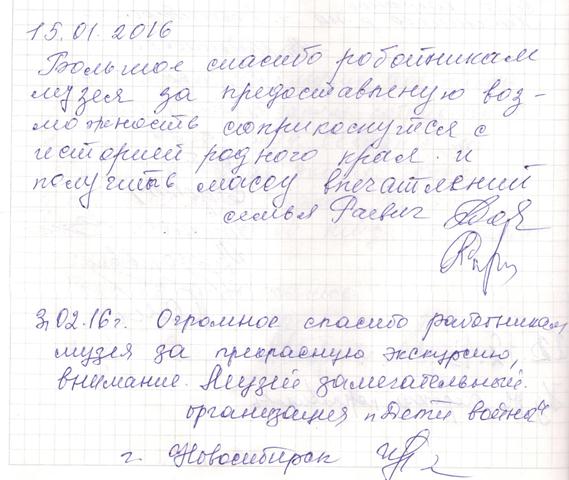 15.01.2016
Большое спасибо роботникам
музея за предоставленую воз-
можность соприкоснутся с
историей родного края и
получить массу впечатлений
семья
3,02.16г. Огромное спасибо работникам
музея за прекрасную экскурсию,
внимание. Музей замечательный.
организация "Дети война"
г. Новосибирск